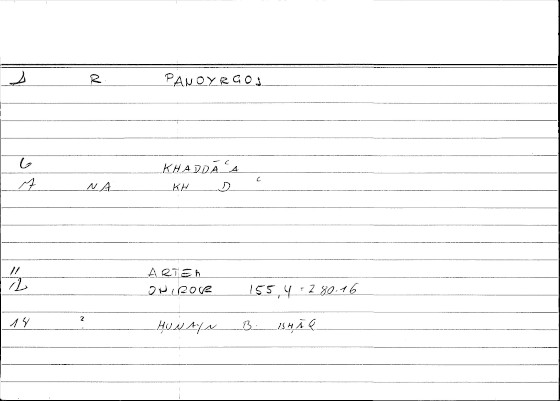 1 R PANOYRGOS
6 KHADDĀʿA
7 NA KH D ʿ
11 ARTEM
12 ONIROCR 155,4 - 280.16
14 ? HUNAYN B. ISHĀQ